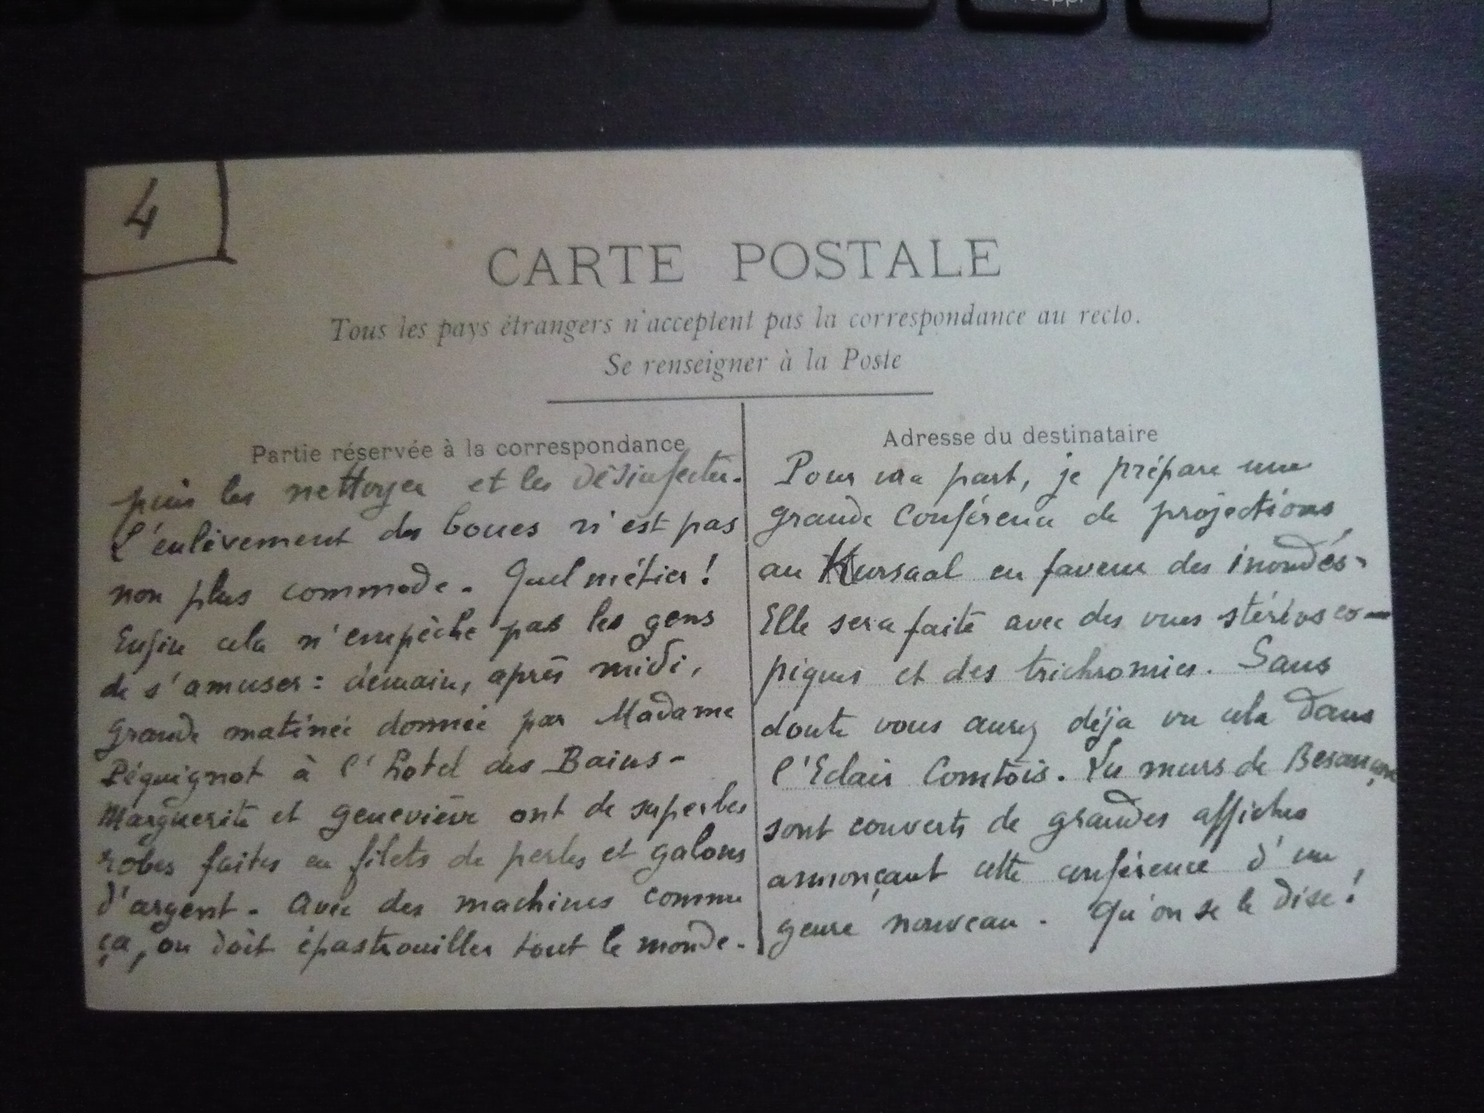 4
CARTE POSTALE
Tous les pays étrangers n'acceptent pas la correspondance au recto.
Se renseigner à la Poste
Partie réservée à la correspondance
puis les nettoyer et les désinfecter.
L'enlèvement des boues n'est pas
non plus commode. Quel métier !
Enfin cela n'empêche pas les gens
de s'amuser : demain, après midi,
grande matinée donnée par Madame
Péquignot à l'hotel des Bains -
Marguerite et geneviève ont de superbes
robes faites en filets de perles et galons
d'argent - avec des machines comme
ça, on doit épastrouiller tout le monde.
Adresse du destinataire
Pour ma part, je prépare une
grande Conférence de projections
au Kursaal en faveur des inondés.
Elle sera faite avec des vues stéréosco-
piques et des trichromies. Sans
doute vous aurez déja vu cela dans
l'Eclair Comtois. Les murs de Besançon
sont couverts de grandes affiches
annonçant cette conférence d'un
genre nouveau. Qu'on se le dise !